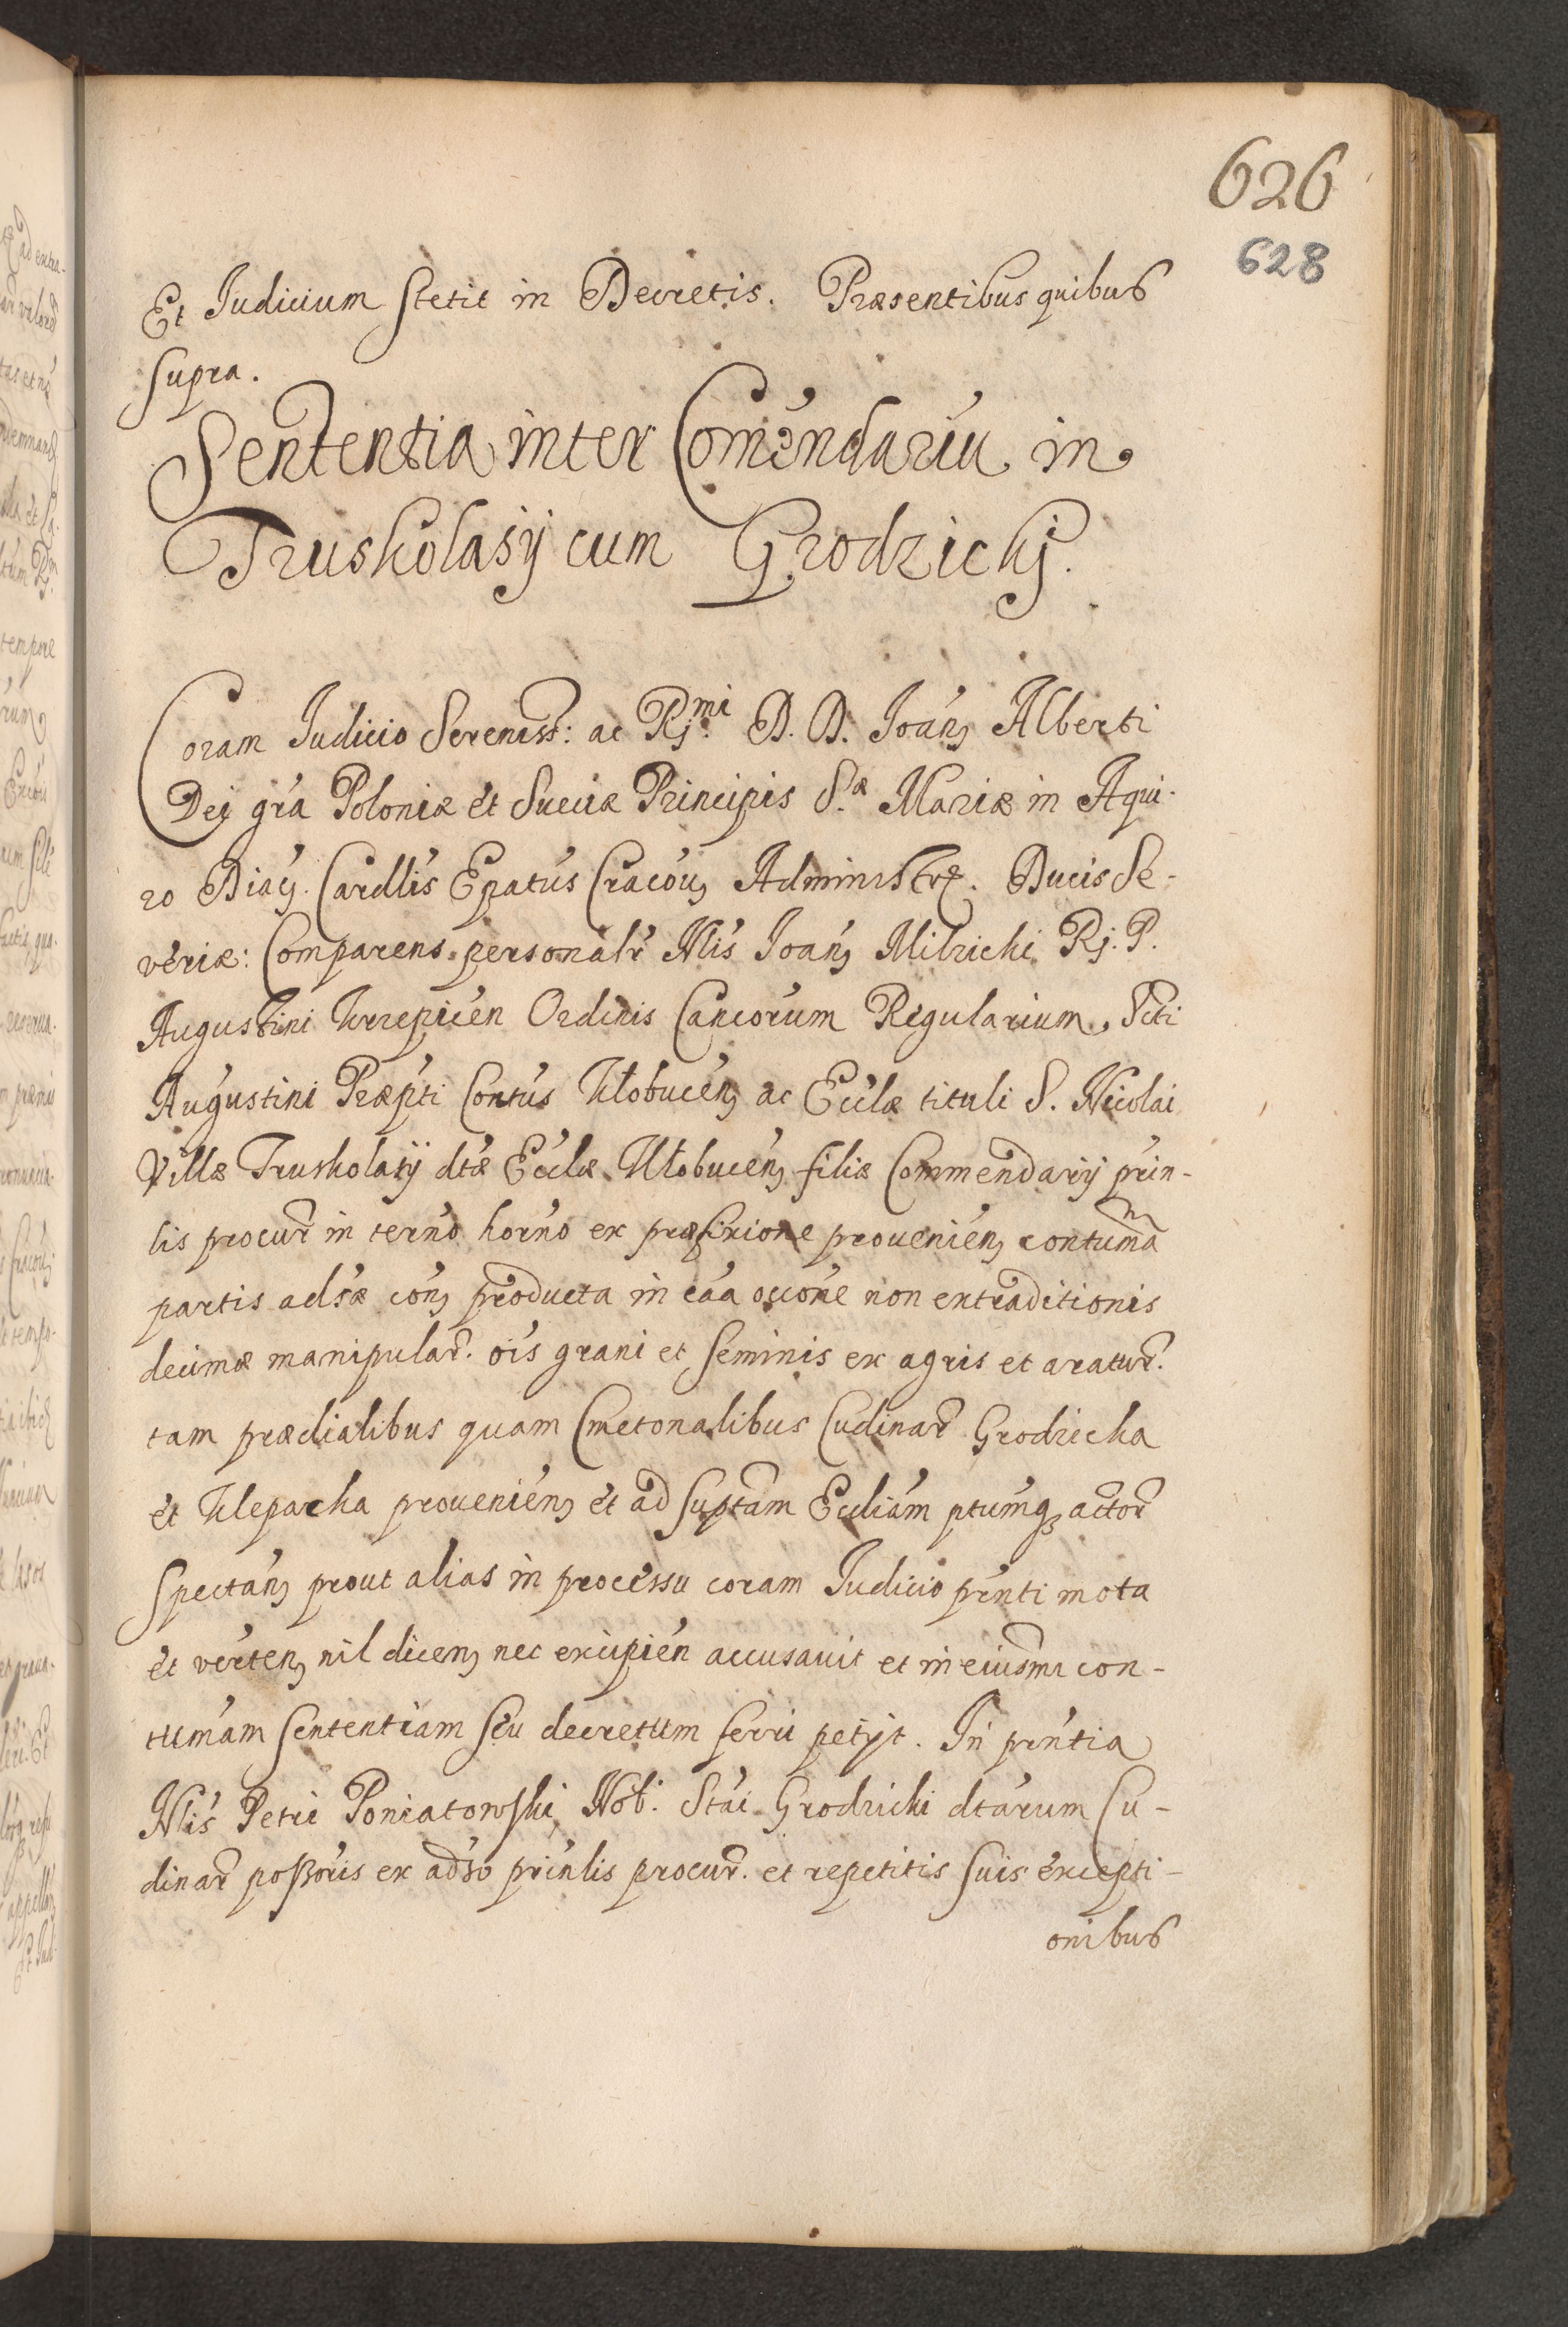 626
628
Et Judicium stetit in Decretis. Præsentibus quibus
supra.
Sententia inter Comēndariu in
Truskolasÿ cum Grodzickj.
Coram Judicio Sereniss: ac Rj.mi D. D. Joan, Alberti
Dej gra Poloniæ et Sueciæ Principis S.æ Mariæ in Aqui-
ro Diac. Cardlis Epatus Cracou, Administr. Ducis Se-
veriæ: Comparens personalr Nlis Joan, Milzicki Rj. P.
Augustini Ordinis Cancorum Regularium, Scti
Augustini Præpti Contus Kłobucen, ac Ecclæ tituli S. Nicolai
Villæ Truskolasÿ dtæ Ecclæ Kłobucen, filiæ Commendarij prin-
lis procur in terno horno ex præfixione prouenien, contuma
partis adsæ con, producta in caa occone non extraditionis
decimæ manipular. ois grani et seminis ex agris et aratur.
tam prædialibus quam Cmetonalibus Cudinar Grodzicka
et Klepacka prouenien, et ad suptam Eccliam ptumq actor
spectan, prout alias in processu coram Judicio prnti mota
et verten, nil dicen, nec excipien accusauit et in eiusmi con-
tumam sententiam seu decretum ferri petÿt. In prntia
Nlis Petri Poniatowski Nob. Stai Grodzicki dtarum Cu-
dinar possoris ex adso prinlis procur. et repetitis suis excepti-
onibus